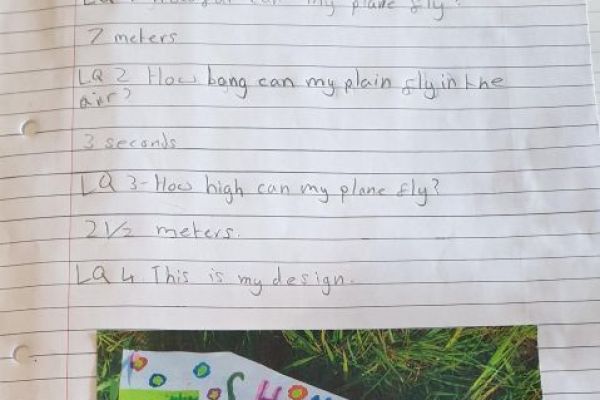 my plane fly?
7 meters
LQ 2 How long can my plain fly in the
air?
3 seconds
LQ 3-How high can my plane fly?
2 1/2 meters.
LQ 4. This is my design.